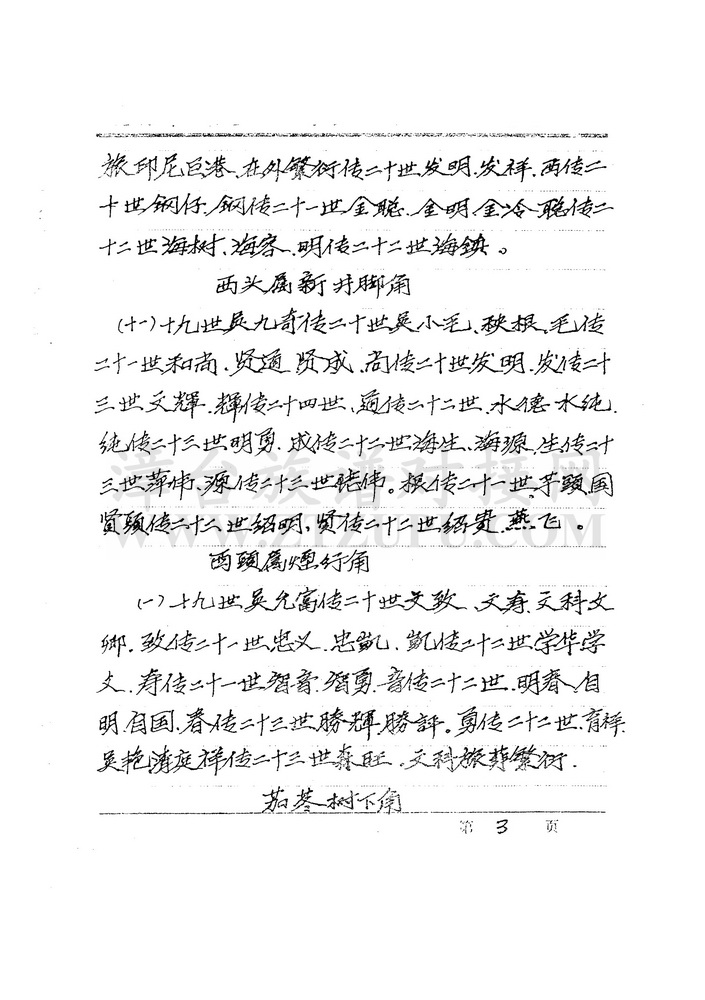 旅印尼巨港、在外繁衍传二十世发明、发祥、西传二
十世钢仔、钢传二十一世金聪、金明、金冷、聪传二
十二世海树、海客、明传二十二世海镇。
西头属新井脚角
(十一)十九世吴九奇传二十世吴小毛、秧根、毛传
二十一世和尚、贤通、贤成、尚传二十世发明、发传二十
三世文輝、輝传二十四世、通传二十二世、水德、水纯、
纯传二十三世明勇、成传二十二世海生、海源、生传二十
三世萍伟、源传二十三世铭伟。根传二十一世、芋頭国
贤頭传二十二世紹明、贤传二十二世紹貴、燕飞。
西頭属煙行角
(一)十九世吴允富传二十世文致、文寿、文科文
卿、致传二十一世忠义、忠凱、凱传二十二世学华学
文、寿传二十一世智音、智勇、音传二十二世、明春、自
明、自国、春传二十三世勝輝、勝評。勇传二十二世、育祥、
吴艳清庭祥传二十三世森旺、文科旅葬繁衍、
茄苳树下角
第 3 页
漳台族谱对接网
WWW.ZTZUPU.COM